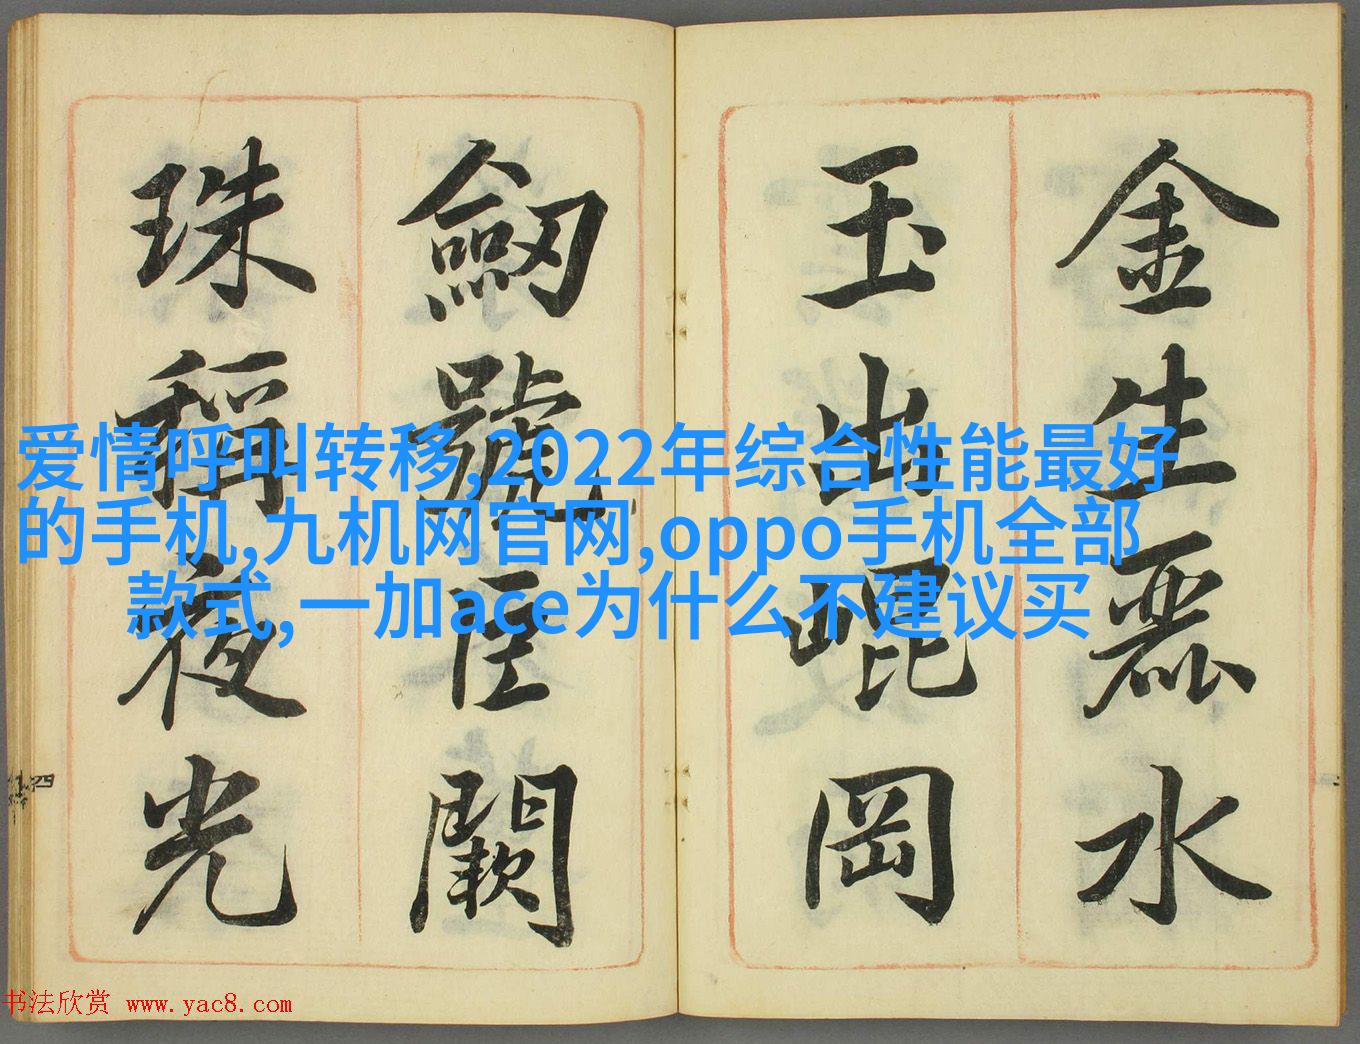 金生麗水
玉出崐岡
劒號巨闕
珠稱夜光
爱情呼叫转移,2022年综合性能最好
的手机,九机网官网,oppo手机全部
款式,一加ace为什么不建议买
四
书法欣赏 www.yac8.com